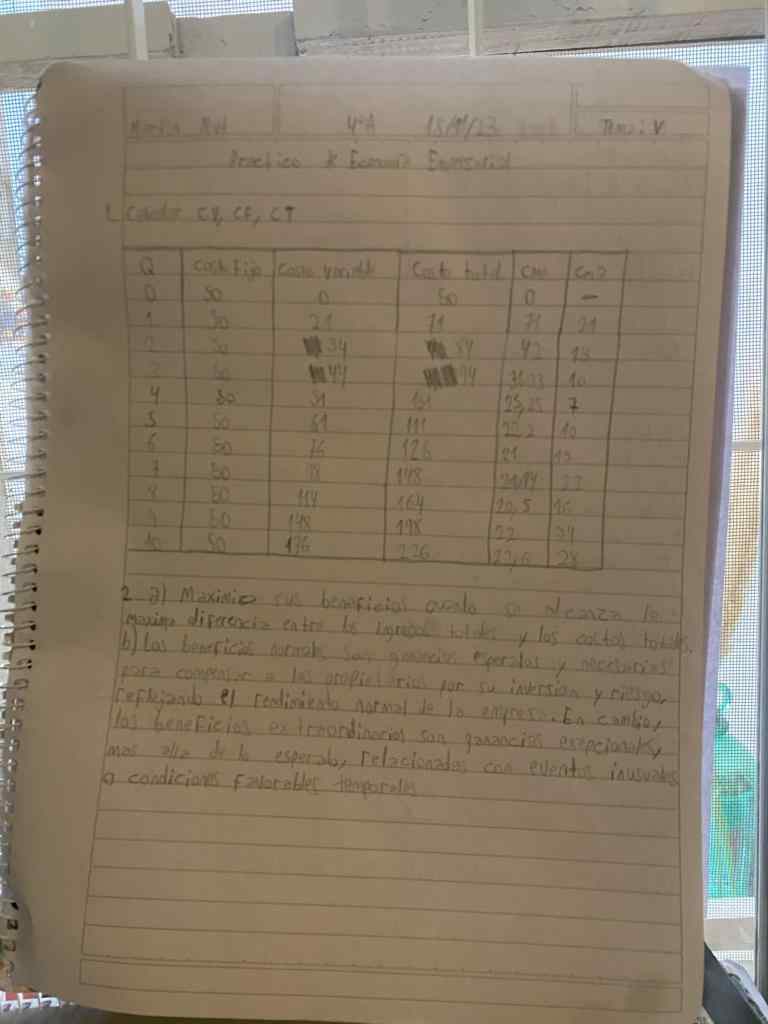 4ºA 15/11/23 Tema: V
Practico de Economia Empresarial
1. Calcular CV, CF, CT
Q Costo Fijo Costo variable Costo total CMe
0 50 0 50 0 –
1 50 21 71 71 21
2 50 34 84 42 13
3 50 44 94 10
4 50 51 101 25,25 7
5 50 61 111 22,2 10
6 50 76 126 21 15
7 50 148 22
8 50 114 164 20,5 16
9 50 148 198 22 34
10 50 176 226 22,6 28
2 a) Maximiza sus beneficios cuando se alcanza la
maxima diferencia entre los ingresos totales y los costos totales.
b) Los beneficios normales son ganancias esperadas y necesarias
para compensar a los propietarios por su inversion y riesgo,
reflejando el rendimiento normal de la empresa. En cambio,
los beneficios extraordinarios son ganancias exepcionales,
mas alla de lo esperado, relacionadas con eventos inusuales
o condiciones favorables temporales